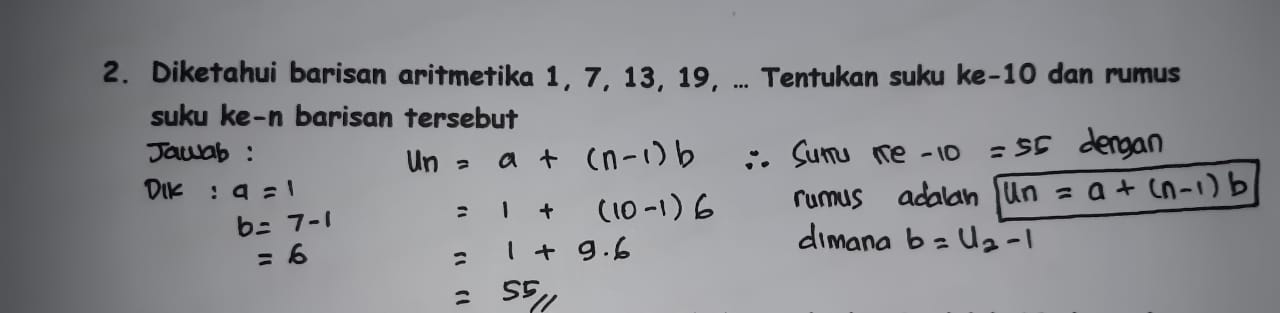 2. Diketahui barisan aritmetika 1, 7, 13, 19, ... Tentukan suku ke-10 dan rumus
suku ke-n barisan tersebut
Jawab :
Dik : a = 1
b = 7-1
= 6
Un = a + (n-1) b
= 1 + (10-1) 6
= 1 + 9.6
= 55//
∴ Suku ke -10 = 55 dengan
rumus adalah Un = a + (n-1) b
dimana b = U2 - 1